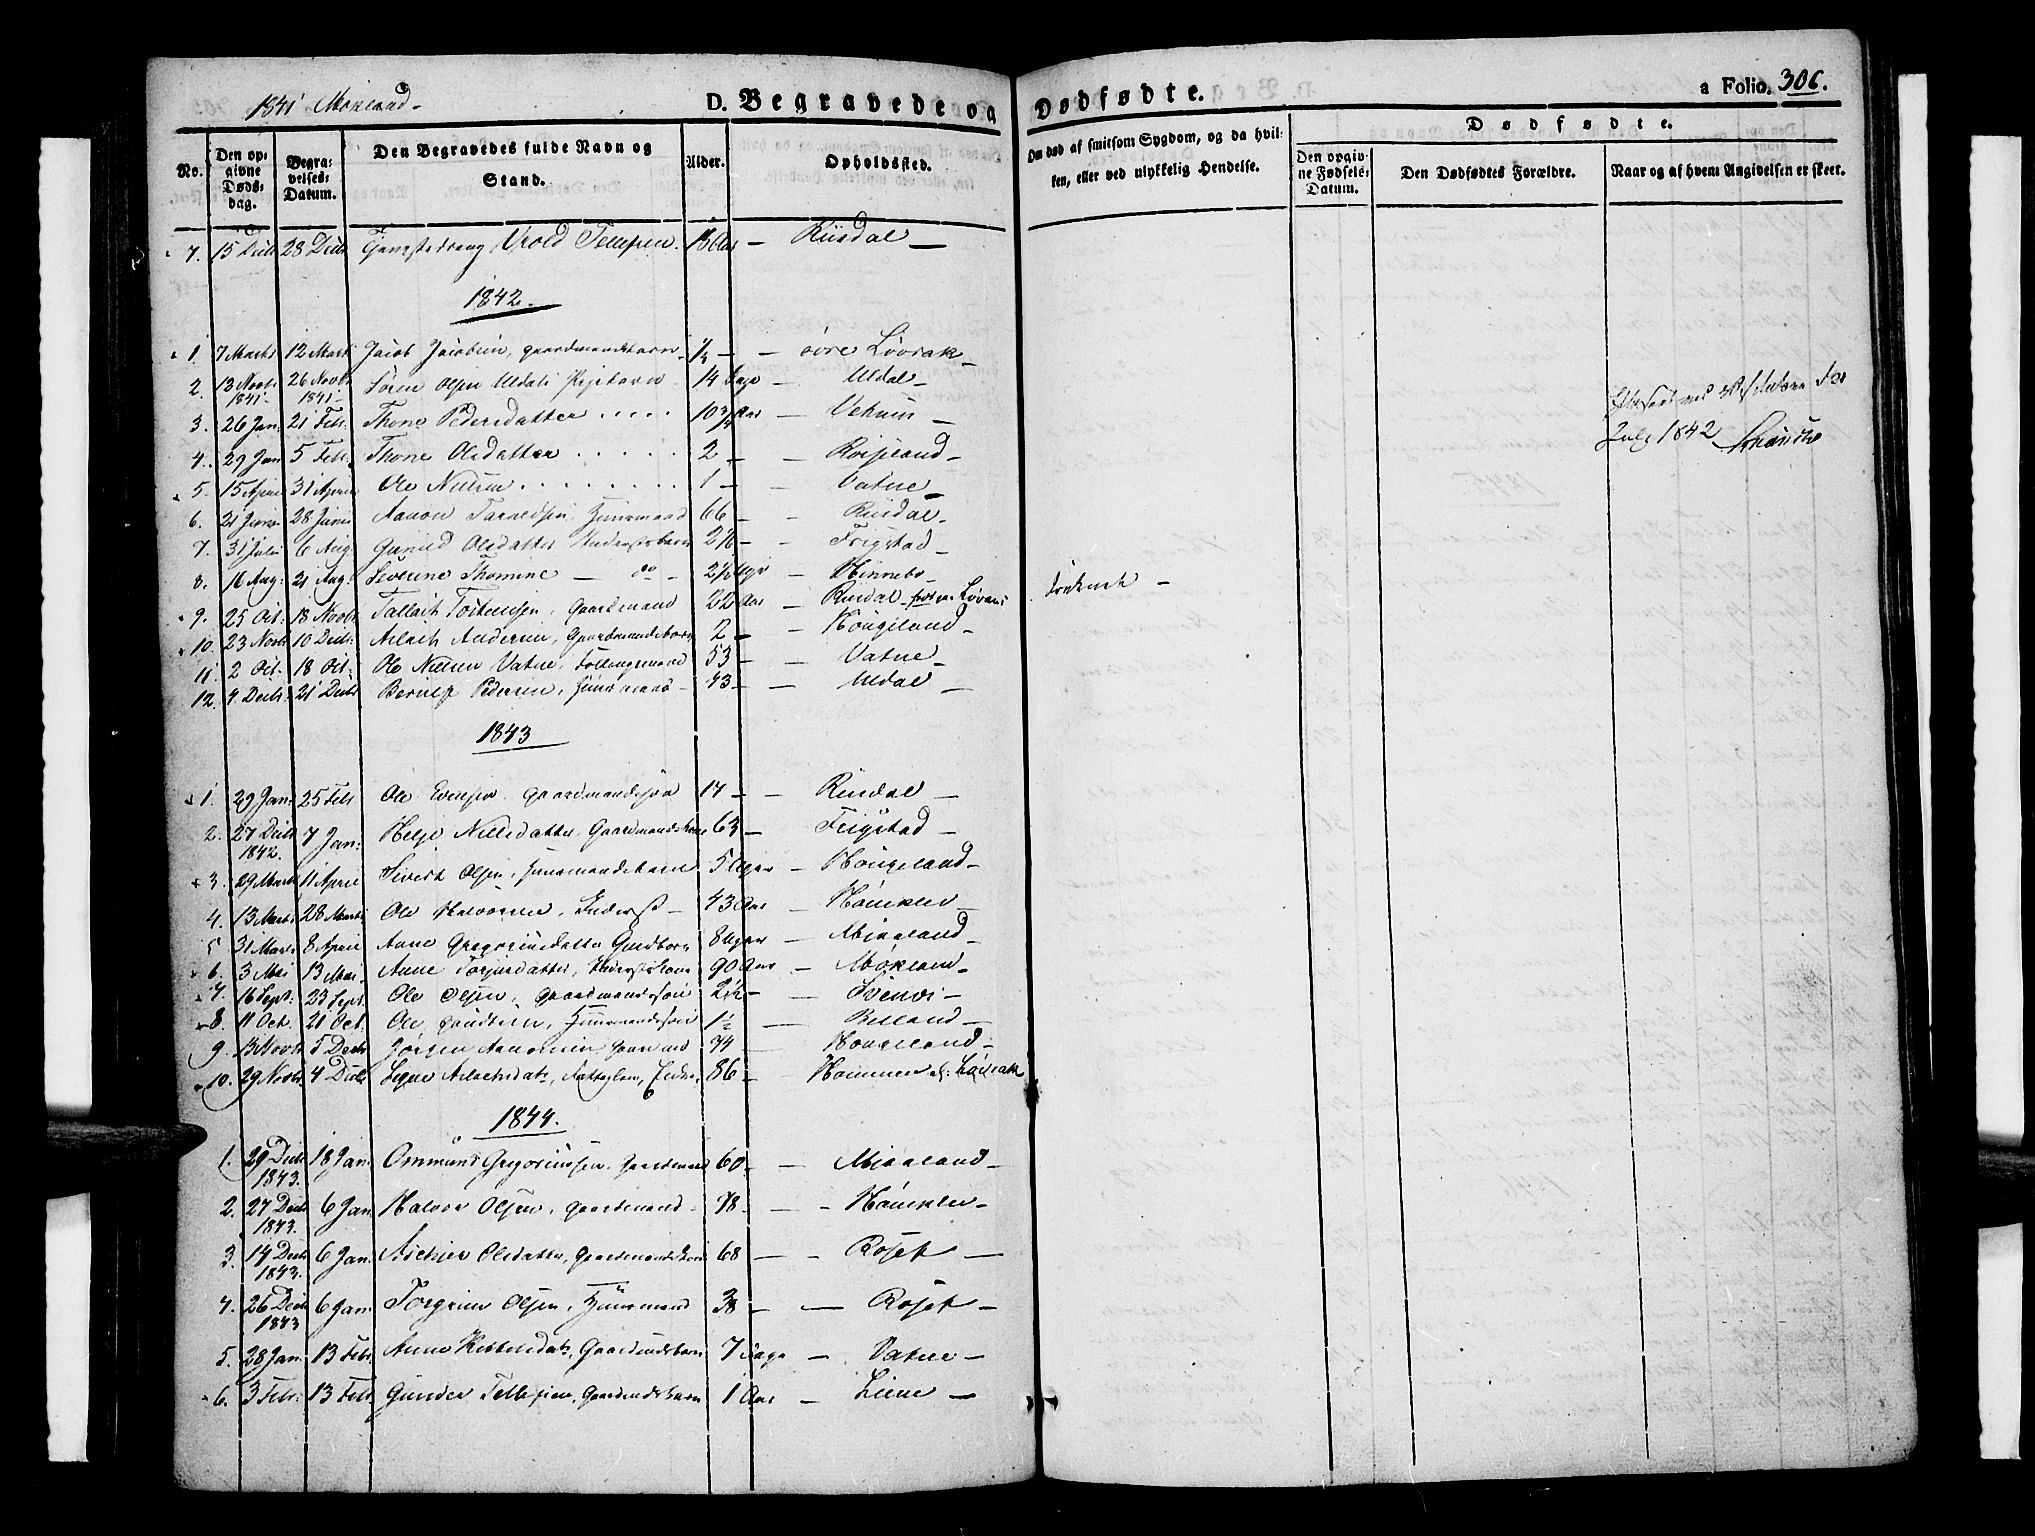 1841 Mykland
D. Begravede og Dødfødte.
a Folio. 306.
No.
Den opgivne Dødsdag.
Begravelses-Datum.
Den Begravedes fulde Navn og Stand.
Alder.
Opholdssted.
Om død af smitsom Sygdom, og da hvilken, eller ved ulykkelig Hendelse.
Dødfødte.
Den opgivne Fødsels-Datum.
Den Dødfødtes Forældre.
Naar og af hvem Angivelsen er skeet.
7. 15 Decb 28 Decb Vrold Tellefsen. 16 Aar — Riisdal —
1842.
1. 7 Marts 12 Mart Jacob Jacobsen, gaardmandsbarn — øvre Løvrak —
2. 13 Novbr 1841 26 Novbr 1841 Søren Olsen Uldals Pigebarn 14 Dage — Uldal —
3. 26 Jan. 21 Febr. Thone Pedersdatter 10 3/4 Aar — Vehuus —
4. 29 Jan 5 Febr. Thone Olsdatter 2 — Roisland —
5. 15 April 31 April Ole Nielsen 1 — Vatne —
6. 21 Juni 28 Juni Aanon Taraldsen, Huusmand 66 — Riisdal —
7. 31 Juli 6 Aug. Gunild Olsdatter 2 1/2 — Frigstad —
8. 16 Aug: 21 Aug. Severine Thomine — do — 2 1/2 Uger — Hinnebo —
9. 25 Oct: 18 Novbr Tallach Torkensen, Gaardmand 22 Aar — Riisdal
10. 23 Novbr 10 Decb: Aslach Andersen, Gaardmandsbarn 2 — Hougeland —
11. 2 Oct: 18 Oct: Ole Nielsen Vatne, Føllaugsmand 53 — Vatne —
12. 4 Decbr: 21 Decbr Berulf Pedersen, Huusmand — 43 — Uldal —
Efterseet ved Visitatsen
July 1842
1843
1. 29 Jan: 25 Febr Ole Evensen gaardmandssøn 17 — Riisdal —
2. 27 Decb 1842. 7 Jan: Helje Nielsdatter, Gaardmandskone 63 — Frigstad —
3. 29 Marts 11 April Sivert Olsen, Huusmandsbarn 5 Uger — Hougeland —
4. 13 Marts 28 Marts Ole Halvorsen, Inderst — 43 Aar — Høimklev —
5 31 Marts 8 April Anne Gregoriusdatter Gaardbarn 8 Uger — Mjaaland —
6. 3 Mai 13 Mai. Anne Torjusdatter, Inderstkone 90 Aar — Mykland —
7. 16 Sept: 23 Sept. Ole Olsen, gaardmandssøn 2 1/2 — Svenøi —
8. 11 Oct. 21 Oct. Ole Knudsen, Huusmandssøn 1 1/2 — Belland —
9. 13 Novb 5 Decbr Jørgen Aanonsen, gaardmd 74 — Hougeland —
10. 29 Novb: 4 Decb Signe Aslachsdatr, 86 — Hommen
1844.
1. 29 Decb 1843. 18 Jan. Ommund Gregoriussen, gaardmand 60 — Mjaaland —
2. 27 Decb 1843. 6 Jan Halvor Olsen, gaardmand 78 — Høimklev —
3. 14 Decb 1843. 6 Jan: Olsdatter, Gaardmandskone 68 — Røset —
4. 26 Decb 1843 6 Jan. Torgrim Olsen, Huusmand 38 — Røset —
5. 28 Jan. 13 Febr. Anne Kittelsdatr, Gaardmdsbarn 7 Dage — Vatne —
6. 3 Febr: 13 Febr. Gunder Tellefsen, Gaardmdsbarn 1 Aar — Liene —